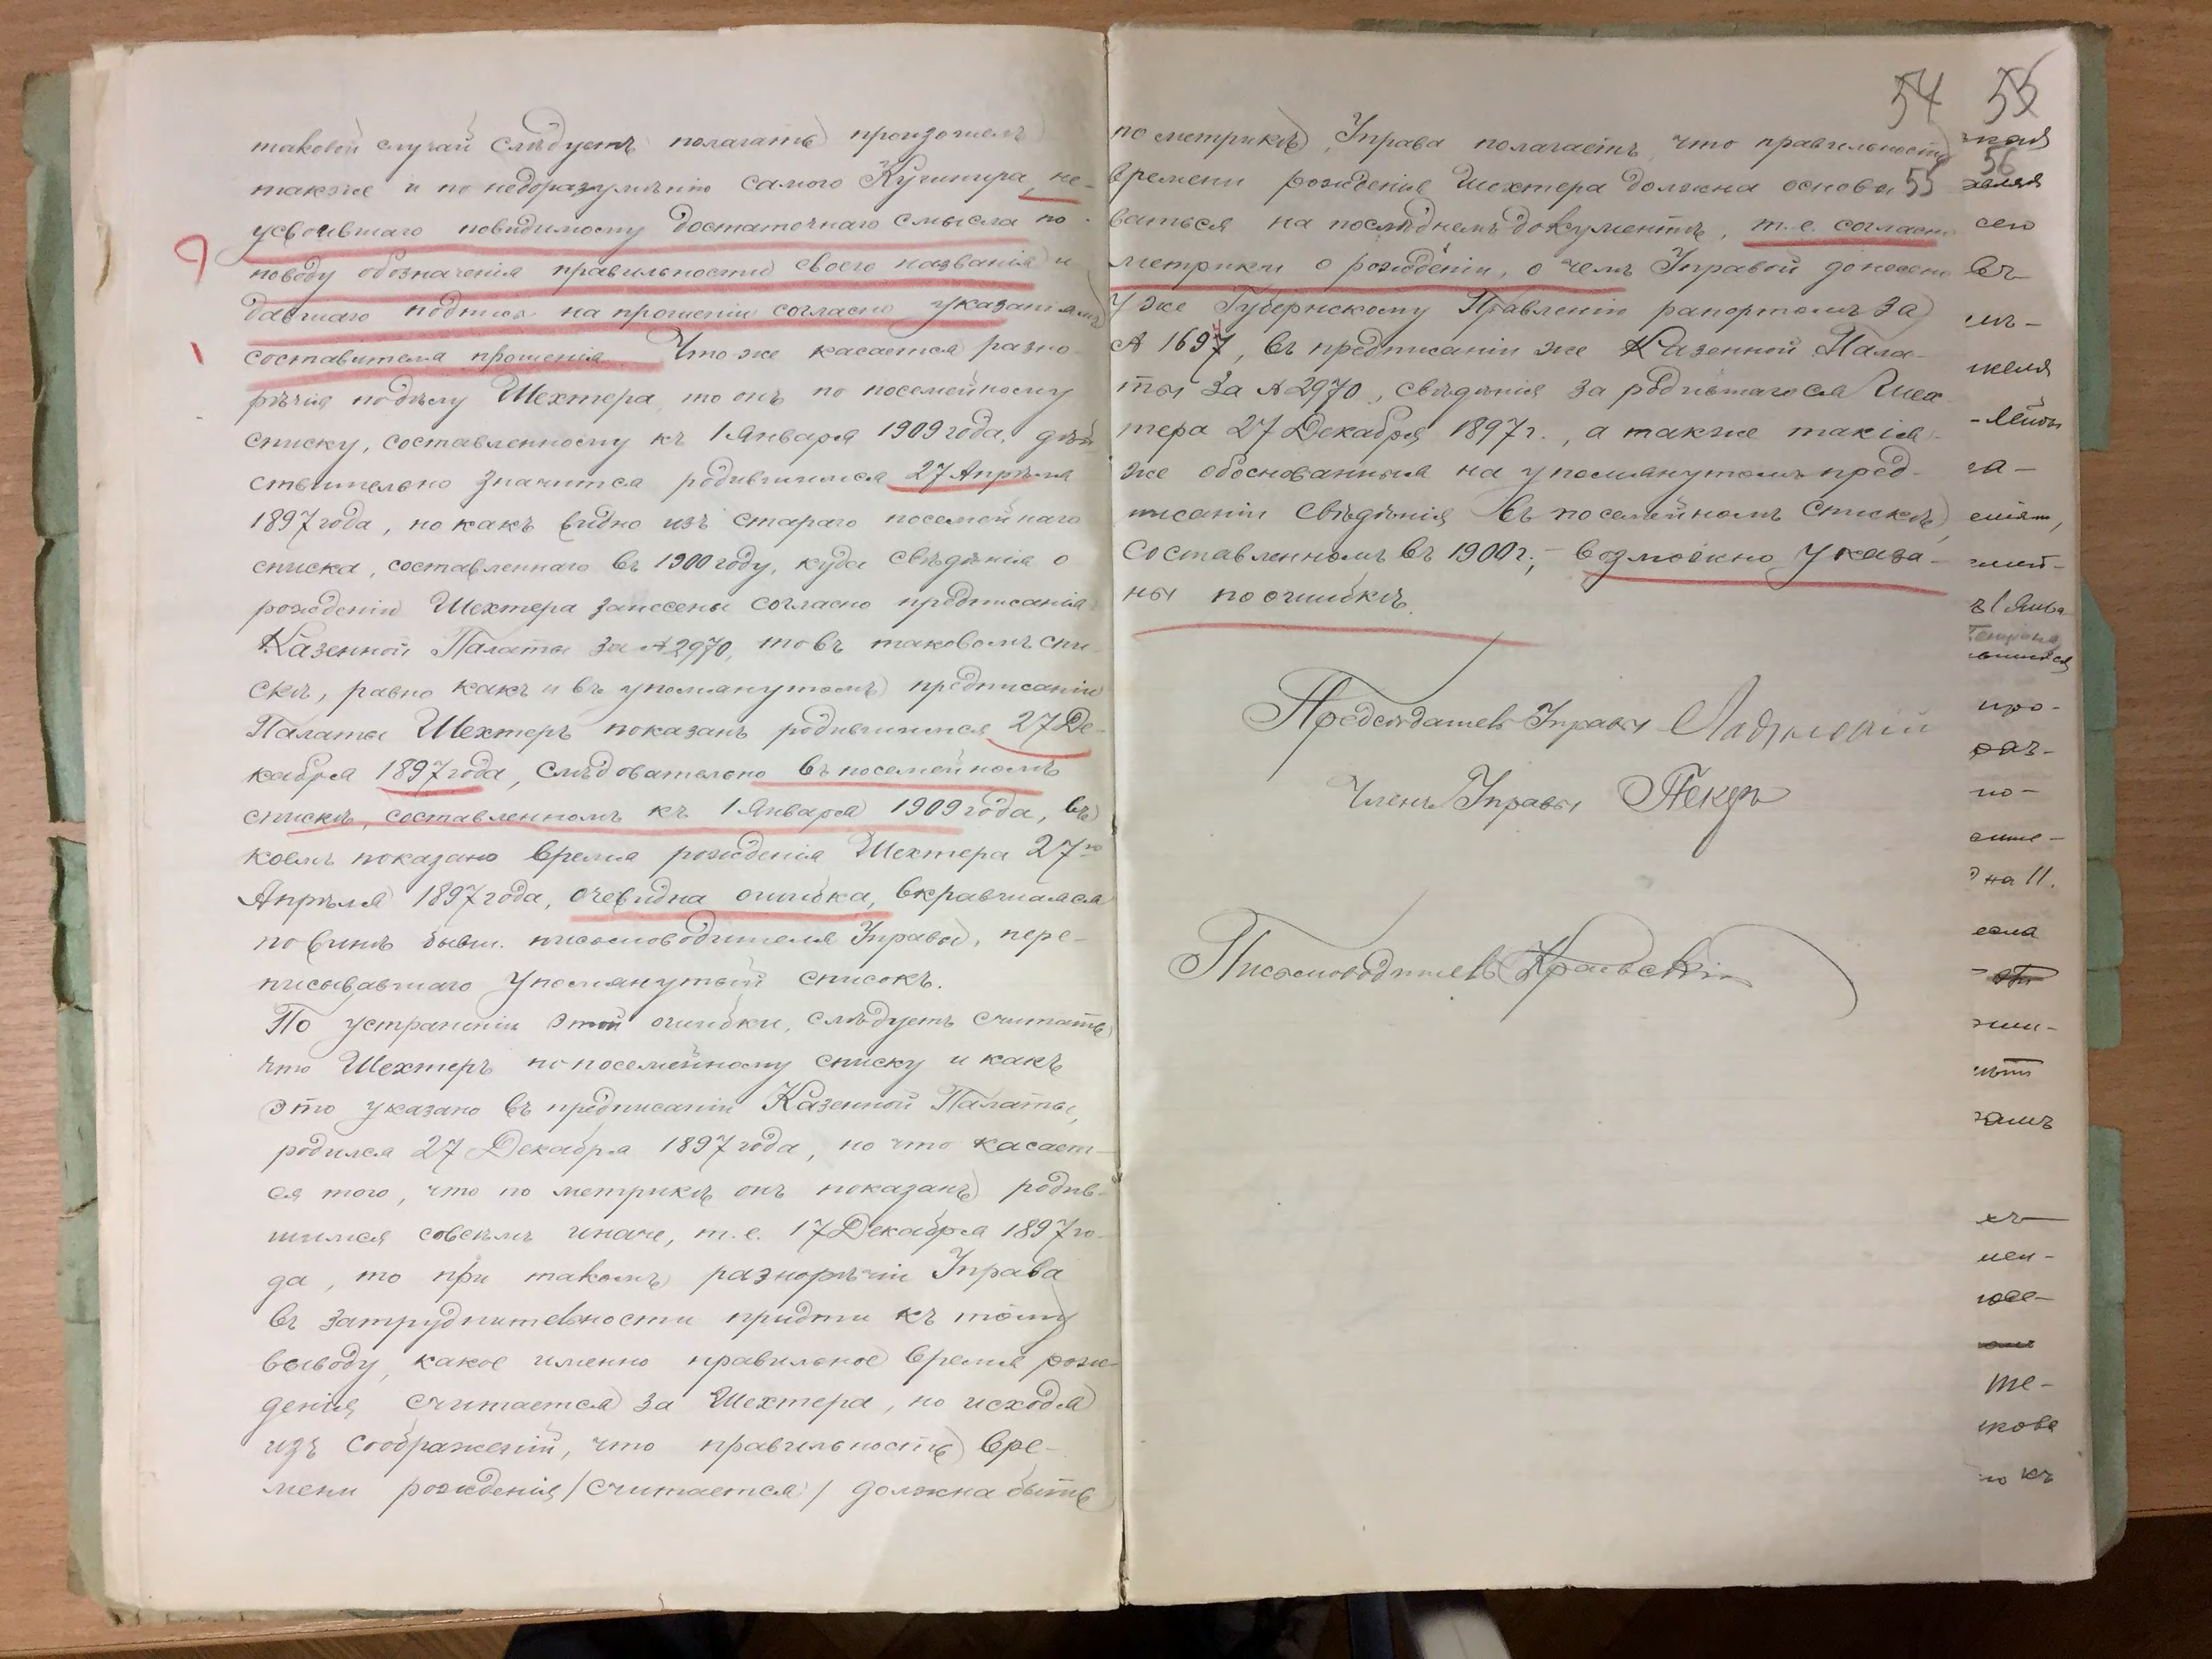 таковой случай слѣдуетъ полагать произошелъ
также и по недоразумѣнію самого Кушнира, не-
усвоившаго повидимому достаточнаго смысла по
поводу обозначенія правильности своего названія и
давшаго подпись на прошеніи согласно указаніямъ
составителя прошенія. Что же касается разно-
рѣчія по дѣлу Шехтера, то онъ по посемейному
списку, составленному къ 1 Января 1909 года, дѣй
ствительно значится родившимся 27 Апрѣля
1897 года, но какъ видно изъ стараго посемейнаго
списка, составленнаго въ 1900 году, куда свѣдѣнія о
рожденіи Шехтера занесены согласно предписанія
Казенной Палаты за № 2970, то въ таковомъ спи-
скѣ, равно какъ и въ упомянутомъ предписаніи
Палаты Шехтеръ показанъ родившимся 27 Де-
кабря 1897 года, слѣдовательно въ посемейномъ
спискѣ, составленномъ къ 1 Января 1909 года, въ
коемъ показано время рожденія Шехтера 27го
Апрѣля 1897 года, очевидна ошибка, вкравшаяся
по винѣ бывш. письмоводителя Управы, пере-
писывавшаго упомянутый списокъ.
По устраненіи этой ошибки, слѣдуетъ считать
что Шехтеръ по посемейному списку и какъ
это указано въ предписаніи Казенной Палаты,
родился 27 Декабря 1897 года, но что касает-
ся того, что по метрикѣ онъ показанъ родив-
шимся совсѣмъ иначе, т.е. 17 Декабря 1897 го-
да, то при такомъ разнорѣчіи Управа
въ затруднительности придти къ тому
выводу, какое именно правильное время рож-
денія считается за Шехтера, но исходя
изъ соображеній, что правильность вре-
мени рожденія /считается/ должна быть
54 55
по метрикѣ, Управа полагаетъ, что правильность
56
времени рожденія Шехтера должна основы 55
ваться на послѣднемъ документѣ, т.е. согласно
метрики о рожденіи, о чемъ Управой донесено
уже Губернскому Правленію рапортомъ за
№ 1697, въ предписаніи же Казенной Пала-
ты за № 2970, свѣдѣнія за родившагося Шех-
тера 27 Декабря 1897 г., а также такія
же обоснованныя на упомянутомъ пред-
писаніи свѣдѣнія въ посемейномъ спискѣ,
составленномъ въ 1900 г., – возможно указа-
ны по ошибкѣ.
Предсѣдатель Управы
Членъ Управы Пекеръ
Письмоводитель
сего
въ
про-
по-
на 11.
если
те-
кова
но къ